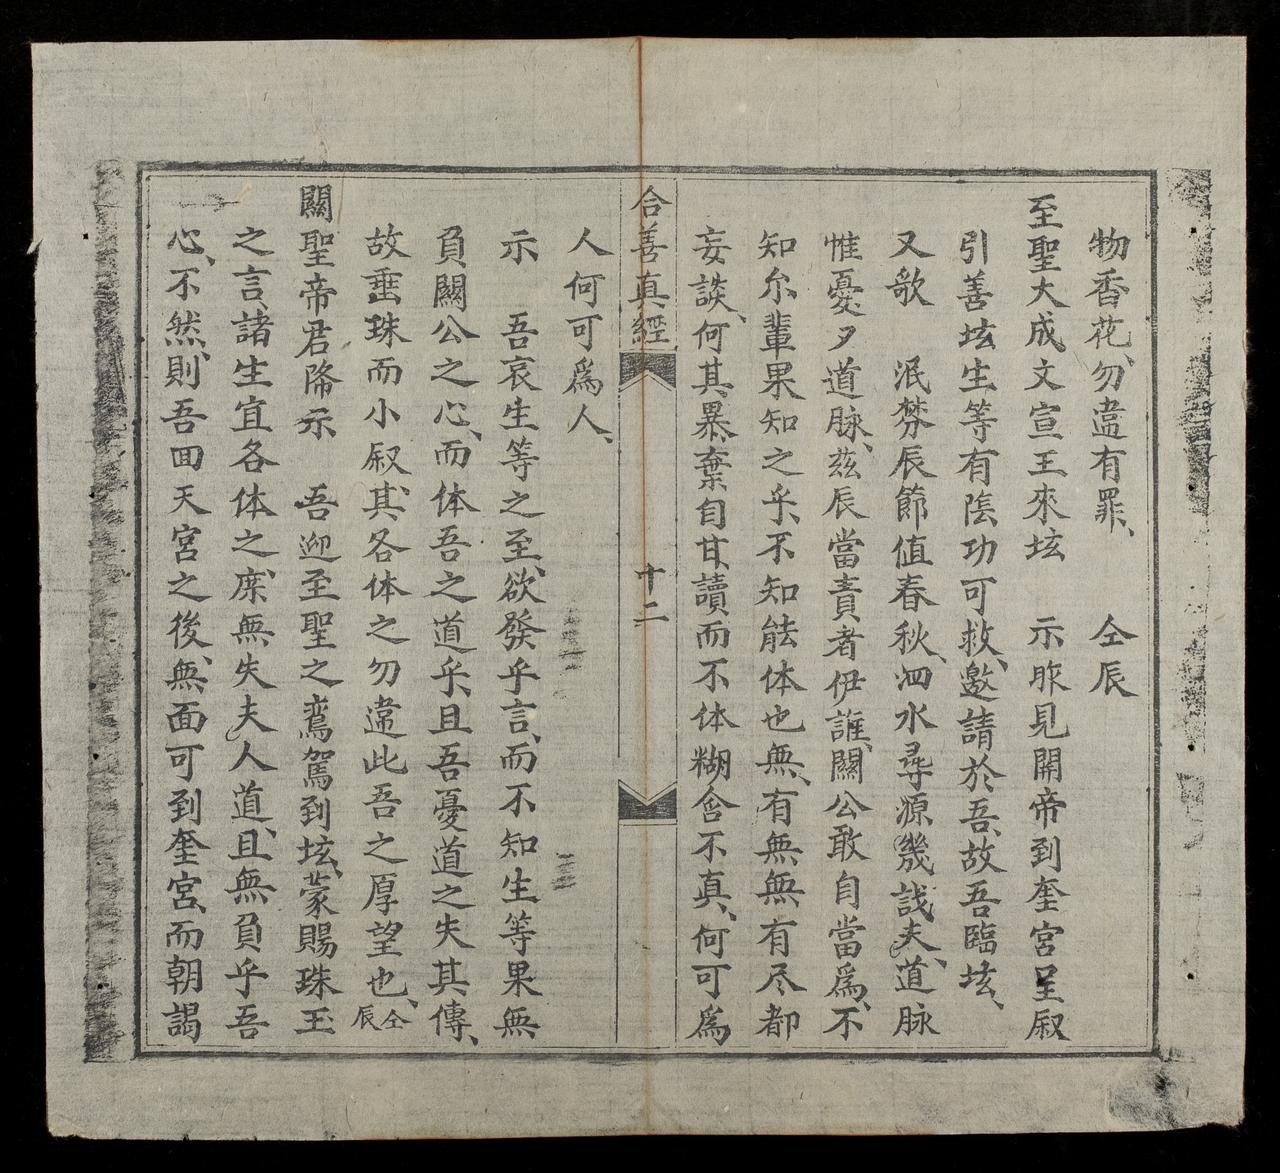 物香花、勿違有罪、　仝辰
至聖大成文宣王來坛　示昨見開帝到奎宮呈叙
引善坛生等有陰功可救、邀請於吾、故吾臨坛、
又歌　泯棼辰節值春秋、泗水尋源幾誠夫、道脉
惟憂夕道脉、茲辰當責者伊誰、關公敢自當爲、不
知尔輩果知之乎、不知能体也無、有無無有尽都
妄談、何其暴棄自甘、讀而不体糊含不真、何可爲
合善真經　十二
人何可爲人、
示　吾哀生等之至、欲發乎言、而不知生等果無
負關公之心、而体吾之道乎、且吾憂道之失其傳、
故垂珠而小叙、其各体之勿違此吾之厚望也、仝辰
關聖帝君降示　吾迎至聖之鸞駕到坛、蒙賜珠玉
之言、諸生宜各体之、庶無失夫人道、且無負乎吾
心、不然、則吾囬天宮之後、無面可到奎宮、而朝謁